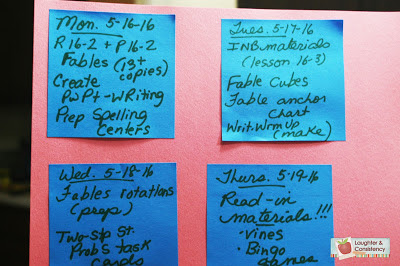 Mon. 5-16-16
R 16-2 + P 16-2
Fables (13+
copies)
Create
PwPt-WRiting
Prep Spelling
Centers
Tues. 5-17-16
INB materials
(lesson 16-3)
Fable Cubes
Fable anchor
Chart
Writ. Wrm Up
(make)
Wed. 5-18-16
Fables rotations
(prep)
Two-Stp St.
Prob's task
cards
Thurs. 5-19-16
Read-in
materials!!!
• Vines
• Bingo
games
Laughter &
Consistency